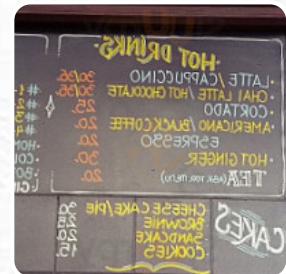 ·HOT DRINKS·
·LATTE/CAPPUCCINO 30/35.
·CHAI LATTE/HOT CHOCOLATE 30/35.
·CORTADO 25.
·AMERICANO/BLACK COFFEE 20.
ESPRESSO 20.
·HOT GINGER 30.
TEA (ASK FOR MENU) 20.
CAKES
CHEESE CAKE/PIE
BROWNIE
SANDCAKE
COOKIES 15.